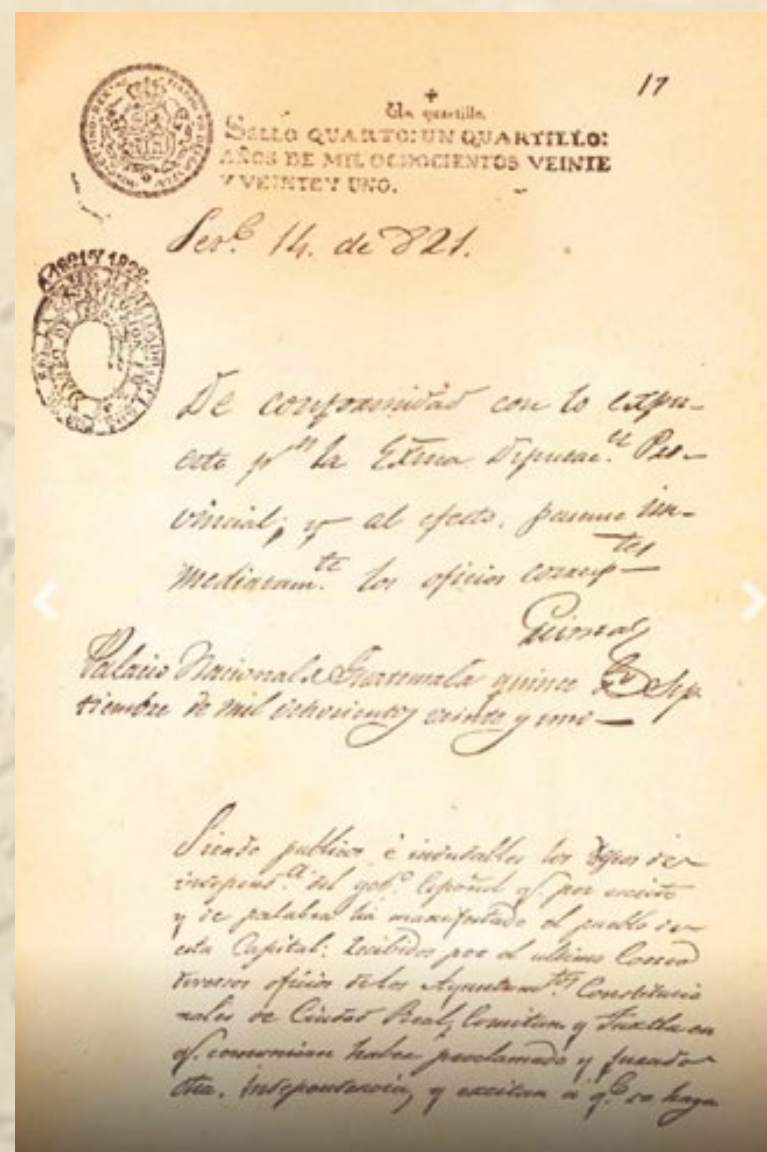 17
Un quartillo.
SELLO QUARTO: UN QUARTILLO:
AÑOS DE MIL OCHOCIENTOS VEINTE
Y VEINTE Y UNO.
14. de 821.
A 1821 Y 1822.
De conformidad con lo expu-
esto pr. la Exma. Diputac.on Pro-
vincial; y al efecto, pasense in-
mediatam.te los oficios corresp.tes
Palacio Nacional de Guatemala quince de Sep-
tiembre de mil ochocientos veinte y uno
Siendo publicos é indudables los deseos de
independ.a del gob.o Español q. por escrito
y de palabra ha manifestado el pueblo de
esta Capital: Recibidos por el ultimo Correo
diversos oficios de los Ayuntam.tos Constitucio
nales de Ciudad Real, Comitan y Tuxtla en
q. comunican haber proclamado y jurado
dha. Independencia, y excitan a q.e se haga